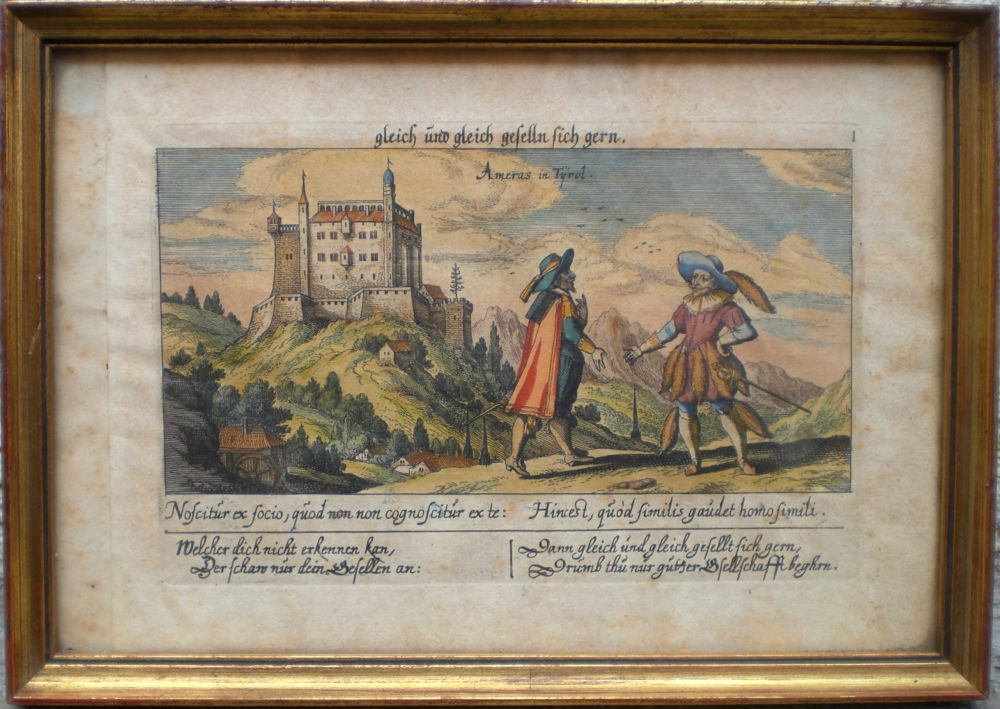 gleich und gleich geselln sich gern.
1
Ameras in Tÿrol.
Noscitur ex socio, quod non non cognoscitur ex te: Hinc est, quòd similis gaudet homo simili.
Welcher dich nicht erkennen kan,
Der schaw nur dein Gesellen an:
Dann gleich und gleich gesellt sich gern,
Drumb thu nur gutter Gsellschafft beghrn.